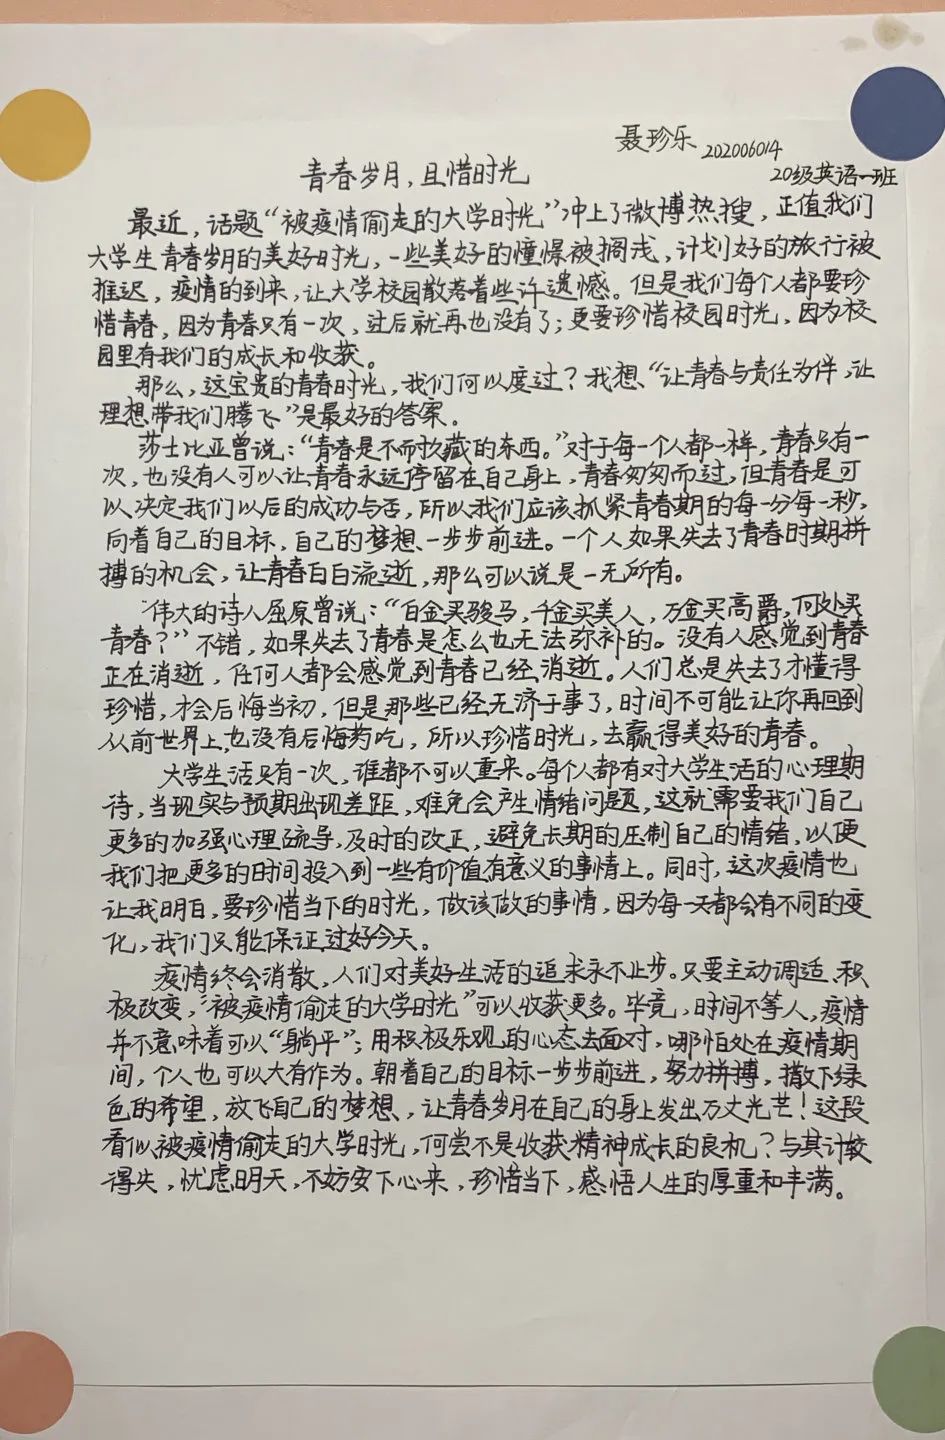 聂珍乐 202006014
青春岁月，且惜时光
20级英语一班
最近，话题“被疫情偷走的大学时光”冲上了微博热搜，正值我们
大学生青春岁月的美好时光，一些美好的憧憬被搁浅，计划好的旅行被
推迟，疫情的到来，让大学校园散落着些许遗憾。但是我们每个人都要珍
惜青春，因为青春只有一次，过后就再也没有了；更要珍惜校园时光，因为校
园里有我们的成长和收获。
那么，这宝贵的青春时光，我们何以度过？我想，“让青春与责任为伴，让
理想带我们腾飞”是最好的答案。
莎士比亚曾说：“青春是不耐久藏的东西。”对于每一个人都一样，青春只有一
次，也没有人可以让青春永远停留在自己身上，青春匆匆而过，但青春是可
以决定我们以后的成功与否，所以我们应该抓紧青春期的每一分每一秒，
向着自己的目标，自己的梦想、一步步前进。一个人如果失去了青春时期拼
搏的机会，让青春白白流逝，那么可以说是一无所有。
伟大的诗人屈原曾说：“百金买骏马，千金买美人，万金买高爵，何处买
青春？”不错，如果失去了青春是怎么也无法弥补的。没有人感觉到青春
正在消逝，任何人都会感觉到青春已经消逝。人们总是失去了才懂得
珍惜，才会后悔当初，但是那些已经无济于事了，时间不可能让你再回到
从前世界上也没有后悔药吃，所以珍惜时光，去赢得美好的青春。
大学生活只有一次，谁都不可以重来。每个人都有对大学生活的心理期
待，当现实与预期出现差距，难免会产生情绪问题，这就需要我们自己
更多的加强心理疏导，及时的改正，避免长期的压制自己的情绪，以便
我们把更多的时间投入到一些有价值有意义的事情上。同时，这次疫情也
让我明白，要珍惜当下的时光，做该做的事情，因为每一天都会有不同的变
化，我们只能保证过好今天。
疫情终会消散，人们对美好生活的追求永不止步。只要主动调适、积
极改变，“被疫情偷走的大学时光”可以收获更多。毕竟，时间不等人，疫情
并不意味着可以“躺平”；用积极乐观的心态去面对，哪怕处在疫情期
间，个人也可以大有作为。朝着自己的目标一步步前进，努力拼搏，撒下绿
色的希望，放飞自己的梦想，让青春岁月在自己的身上发出万丈光芒！这段
看似被疫情偷走的大学时光，何尝不是收获精神成长的良机？与其计较
得失，忧虑明天，不妨安下心来，珍惜当下，感悟人生的厚重和丰满。